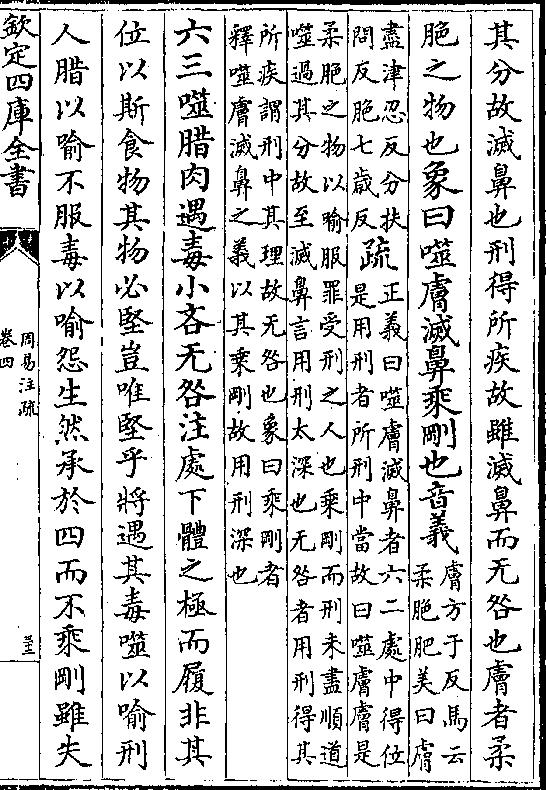 其分故滅鼻也刑得所疾故雖滅鼻而无咎也膚者柔
脃之物也象曰噬膚滅鼻乗剛也音義
膚方于反馬云
柔脃肥美曰膚
盡津忍反分扶
問反脃七歳反
疏
正義曰噬膚滅鼻者六二處中得位
是用刑者所刑中當故曰噬膚膚是
柔脃之物以喻服罪受刑之人也乗剛而刑未盡順道
噬過其分故至滅鼻言用刑太深也无咎者用刑得其
所疾謂刑中其理故无咎也象曰乗剛者
釋噬膚滅鼻之義以其乗剛故用刑深也
六三噬腊肉遇毒小吝无咎注處下體之極而履非其
位以斯食物其物必堅豈唯堅乎將遇其毒噬以喻刑
人腊以喻不服毒以喻怨生然承於四而不乗剛雖失
欽定四庫全書
周易注疏
卷四